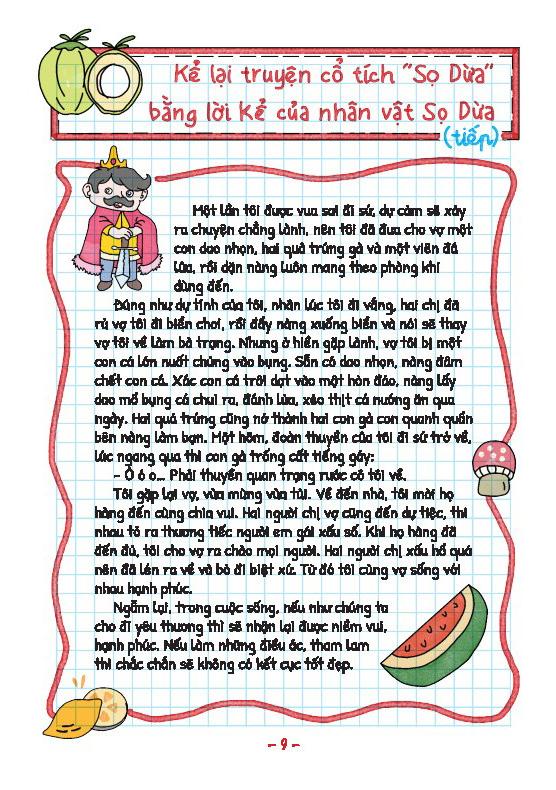 Kể lại truyện cổ tích "Sọ Dừa"
bằng lời kể của nhân vật Sọ Dừa
(tiếp)
Một lần tôi được vua sai đi sứ, dự cảm sẽ xảy
ra chuyện chẳng lành, nên tôi đã đưa cho vợ một
con dao nhọn, hai quả trứng gà và một viên đá
lửa, rồi dặn nàng luôn mang theo phòng khi
dùng đến.
Đúng như dự tính của tôi, nhân lúc tôi đi vắng, hai chị đã
rủ vợ tôi đi biển chơi, rồi đẩy nàng xuống biển và nói sẽ thay
vợ tôi về làm bà trạng. Nhưng ở hiền gặp lành, vợ tôi bị một
con cá lớn nuốt chửng vào bụng. Sẵn có dao nhọn, nàng đâm
chết con cá. Xác con cá trôi dạt vào một hòn đảo, nàng lấy
dao mổ bụng cá chui ra, đánh lửa, xẻo thịt cá nướng ăn qua
ngày. Hai quả trứng cũng nở thành hai con gà con quanh quẩn
bên nàng làm bạn. Một hôm, đoàn thuyền của tôi đi sứ trở về,
lúc ngang qua thì con gà trống cất tiếng gáy:
- Ò ó o... Phải thuyền quan trạng rước cô tôi về.
Tôi gặp lại vợ, vừa mừng vừa tủi. Về đến nhà, tôi mời họ
hàng đến cùng chia vui. Hai người chị vợ cũng đến dự tiệc, thi
nhau tỏ ra thương tiếc người em gái xấu số. Khi họ hàng đã
đến đủ, tôi cho vợ ra chào mọi người. Hai người chị xấu hổ quá
nên đã lén ra về và bỏ đi biệt xứ. Từ đó tôi cùng vợ sống với
nhau hạnh phúc.
Ngẫm lại, trong cuộc sống, nếu như chúng ta
cho đi yêu thương thì sẽ nhận lại được niềm vui,
hạnh phúc. Nếu làm những điều ác, tham lam
thì chắc chắn sẽ không có kết cục tốt đẹp.
- 9 -